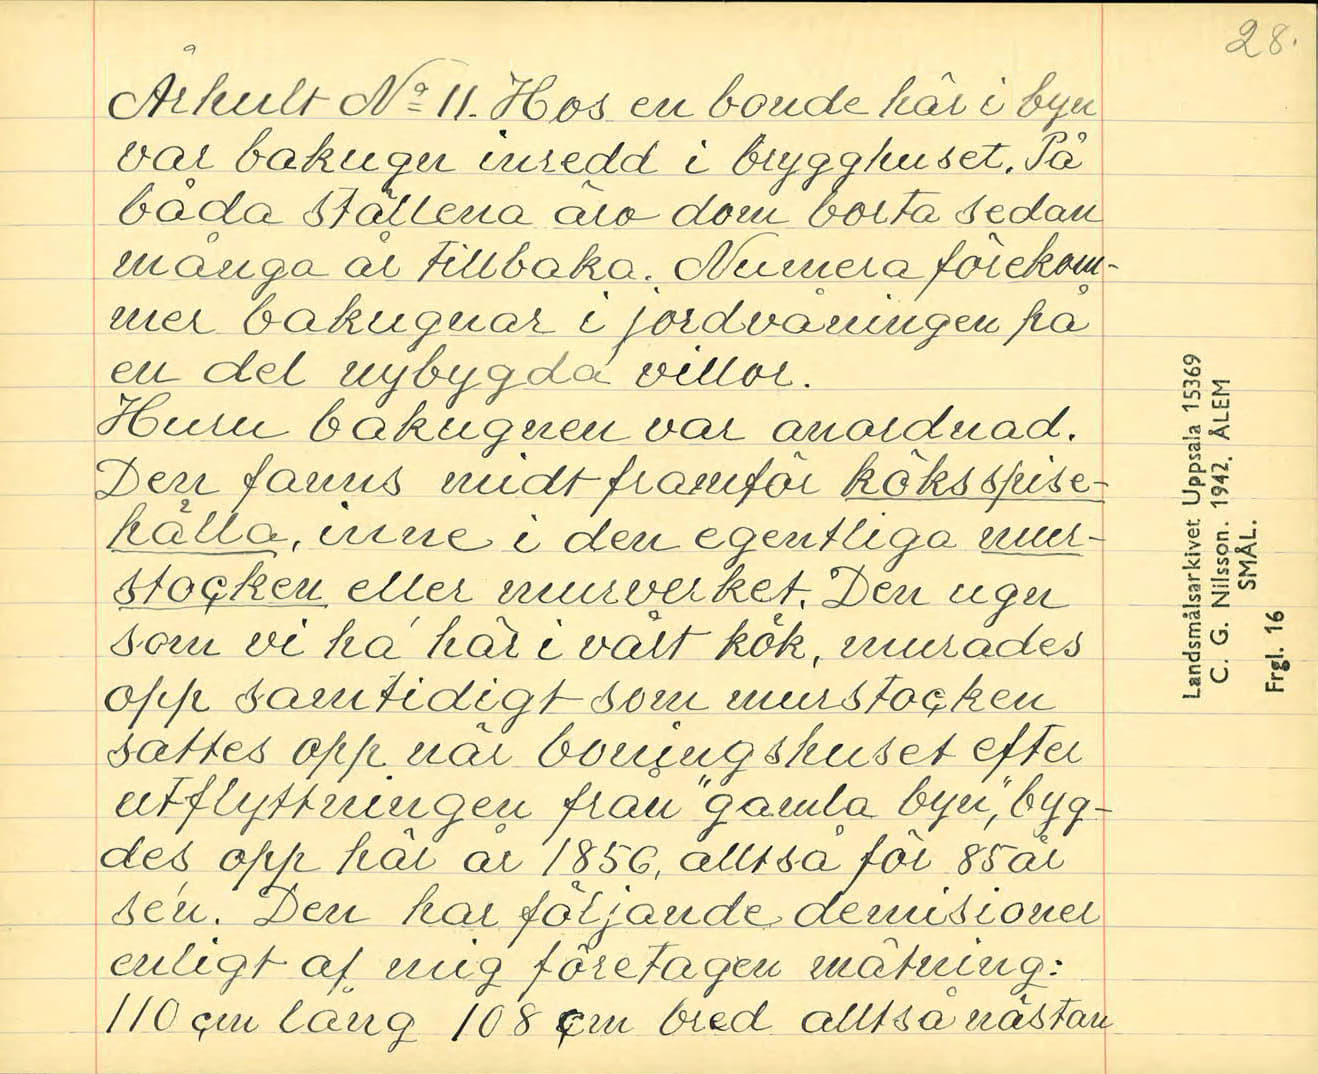 28.
Århult No 11. Hos en bonde här i byn
var bakugn inredd i brygghuset. På
båda ställena äro dom borta sedan
många år tillbaka. Numera förekom-
mer bakugnar i jordvåningen på
en del nybygda villor.
Huru bakugnen var anordnad.
Den fanns midt framför köksspise-
hälla, inne i den egentliga mur-
stocken eller murverket. Den ugn
som vi ha' här i vårt kök, murades
opp samtidigt som murstocken
sattes opp när boningshuset efter
utflyttningen från "gamla byn", byg-
des opp här år 1856, alltså för 85 år
se'n. Den har följande demisioner
enligt af mig företagen mätning:
110 cm lång 108 cm bred alltså nästan
Landsmålsarkivet Uppsala 15369
C. G. Nilsson. 1942. ÅLEM
SMÅL.
Frgl. 16